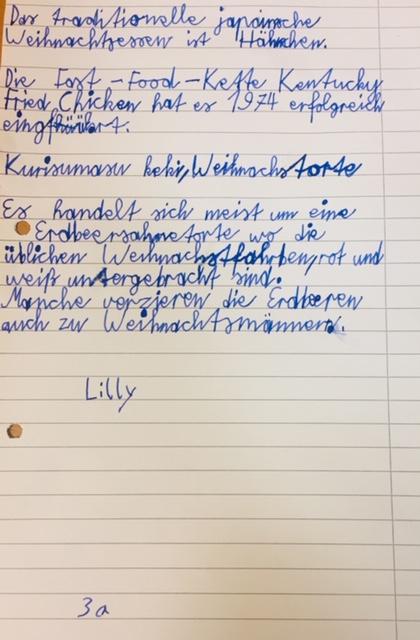 Das traditionelle japanische
Weihnachtsessen ist Hähnchen.
Die Fast-Food-Kette Kentucky
Fried Chicken hat es 1974 erfolgreich
Kurisumasu keki, Weihnachstorte
Es handelt sich meist um eine
Erdbeersahnetorte wo die
üblichen Weihnachstfahrben, rot und
weiß untergebracht sind.
Manche verzieren die Erdbeeren
auch zu Weihnachtsmännern.
Lilly
3a